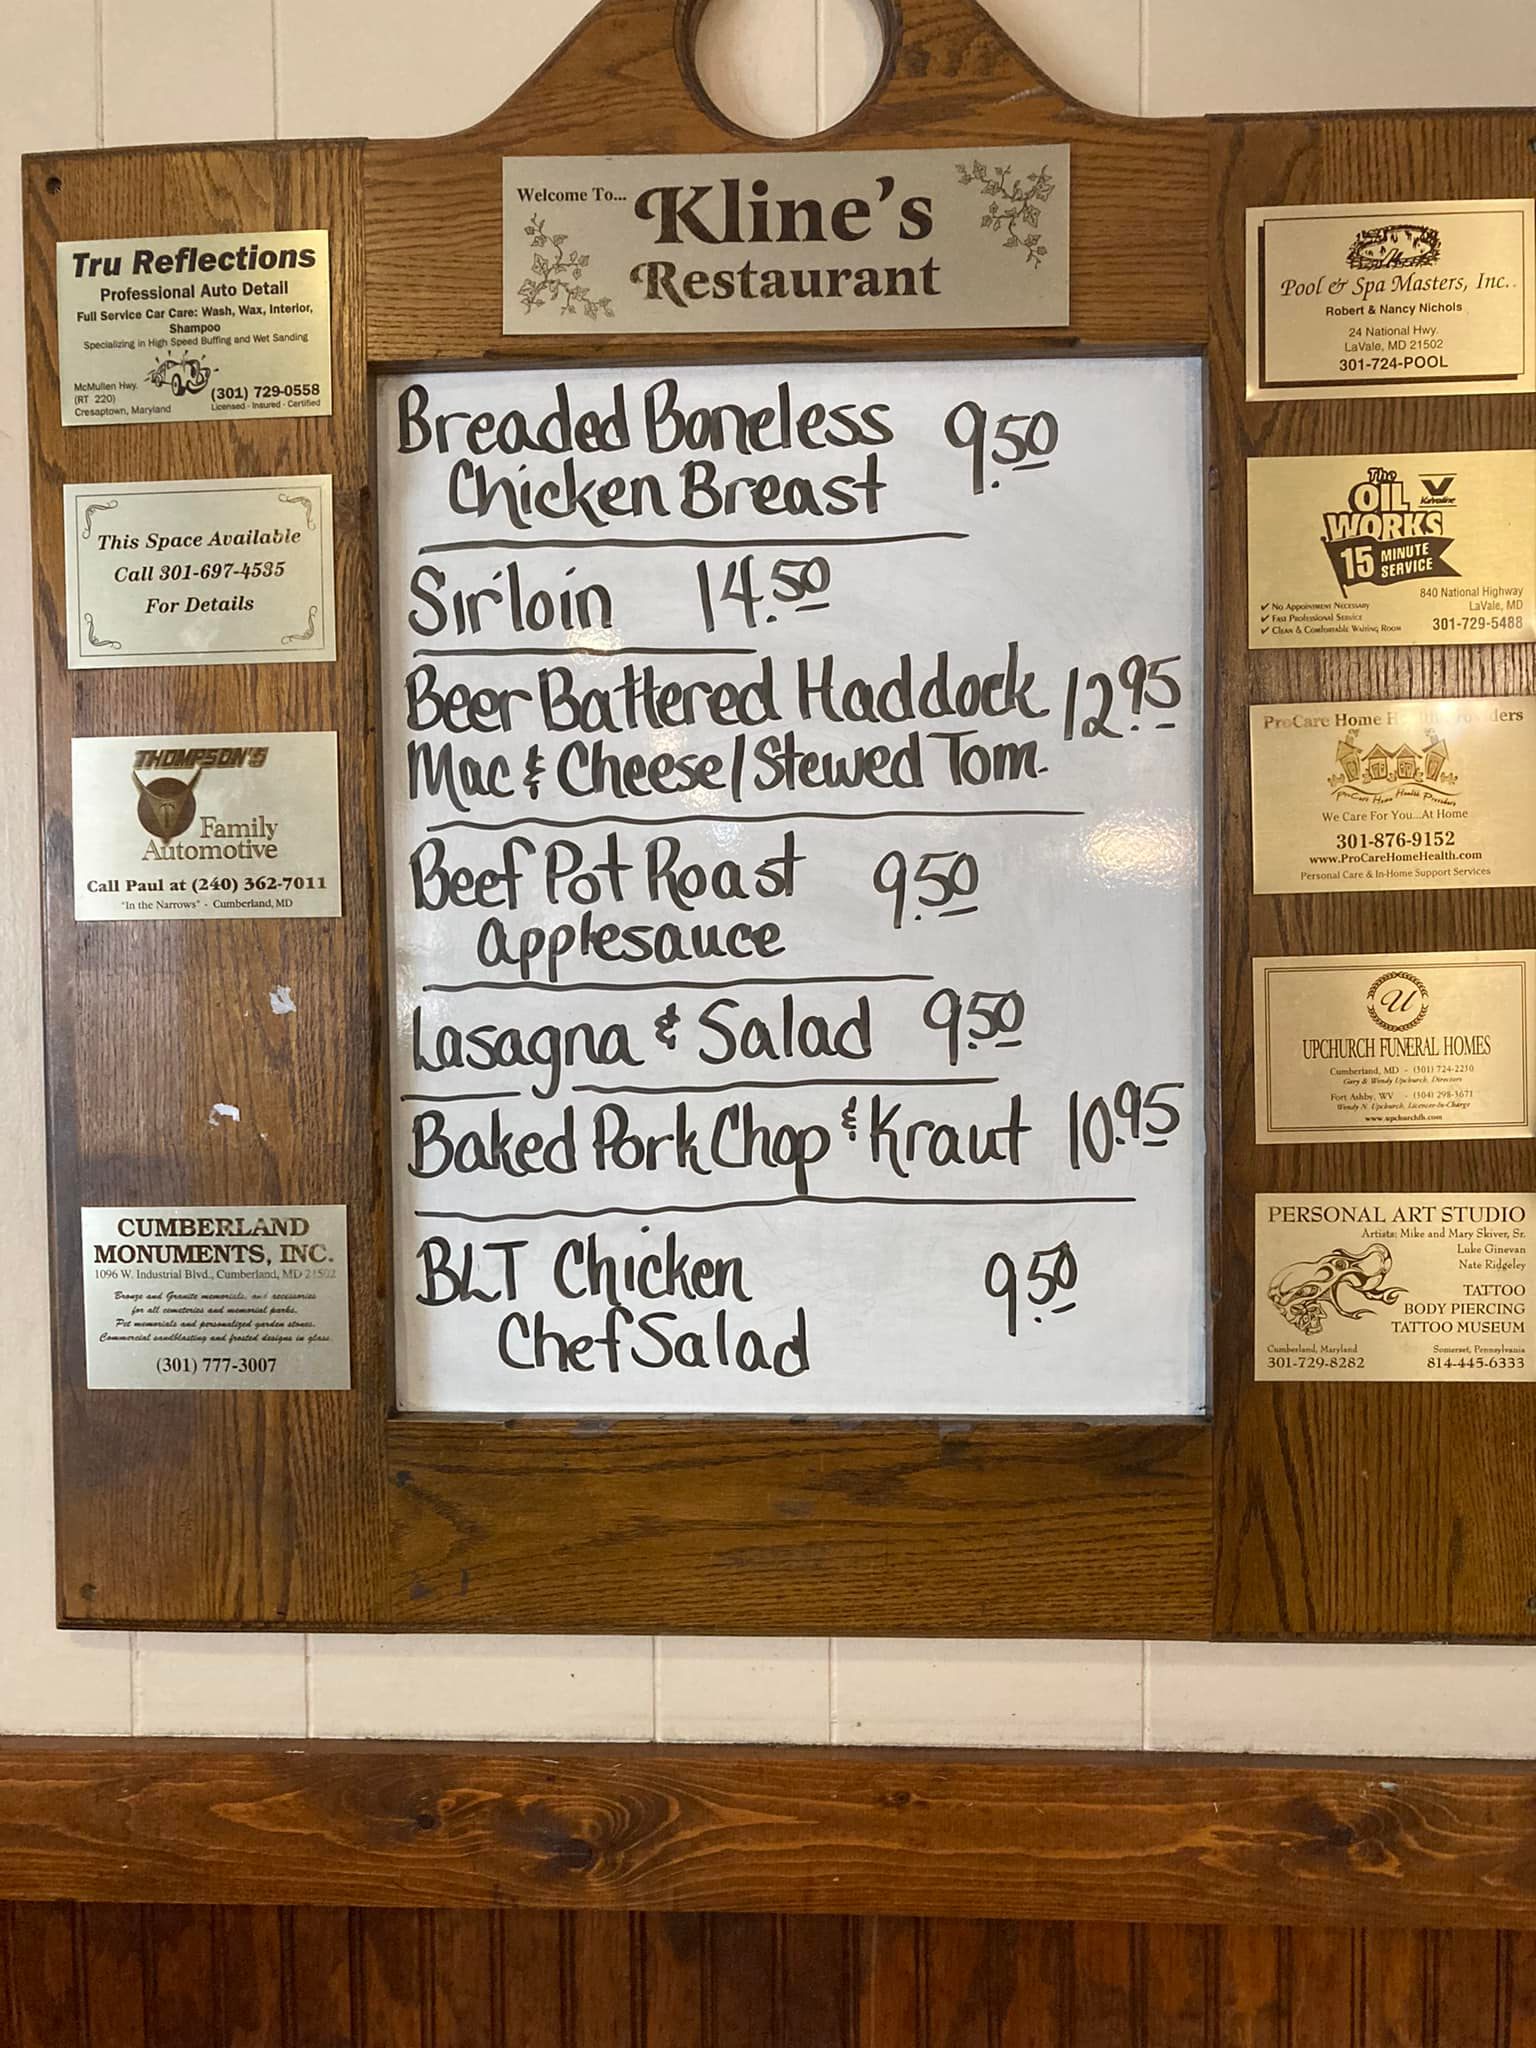 Welcome To... Kline's
Restaurant
Tru Reflections
Professional Auto Detail
Full Service Car Care: Wash, Wax, Interior,
Shampoo
Specializing in High Speed Buffing and Wet Sanding
McMullen Hwy.
(RT 220)
Cresaptown, Maryland
(301) 729-0558
Licensed - Insured - Certified
This Space Available
Call 301-697-4535
For Details
THOMPSON'S
Family
Automotive
Call Paul at (240) 362-7011
"In the Narrows" - Cumberland, MD
CUMBERLAND
MONUMENTS, INC.
1096 W. Industrial Blvd., Cumberland, MD 21502
Bronze and Granite memorials, and accessories
for all cemeteries and memorial parks.
Pet memorials and personalized garden stones.
Commercial sandblasting and frosted designs in glass.
(301) 777-3007
Breaded Boneless 9.50
Chicken Breast
Sirloin 14.50
Beer Battered Haddock 12.95
Mac & Cheese/Stewed Tom.
Beef Pot Roast 9.50
Applesauce
Lasagna & Salad 9.50
Baked Pork Chop & Kraut 10.95
BLT Chicken 9.50
Chef Salad
Pool & Spa Masters, Inc.
Robert & Nancy Nichols
24 National Hwy.
LaVale, MD 21502
301-724-POOL
The
OIL
WORKS
Valvoline
15 MINUTE
SERVICE
✓ No Appointment Necessary
✓ Fast Professional Service
✓ Clean & Comfortable Waiting Room
840 National Highway
LaVale, MD
301-729-5488
ProCare Home Health Providers
ProCare Home Health Providers
We Care For You...At Home
301-876-9152
www.ProCareHomeHealth.com
Personal Care & In-Home Support Services
U
UPCHURCH FUNERAL HOMES
Cumberland, MD - (301) 724-2210
Gary & Wendy Upchurch, Directors
Fort Ashby, WV - (304) 298-3671
Wendy N. Upchurch, Licensee-In-Charge
www.upchurchfh.com
PERSONAL ART STUDIO
Artists: Mike and Mary Skiver, Sr.
Luke Ginevan
Nate Ridgeley
TATTOO
BODY PIERCING
TATTOO MUSEUM
Cumberland, Maryland
301-729-8282
Somerset, Pennsylvania
814-445-6333